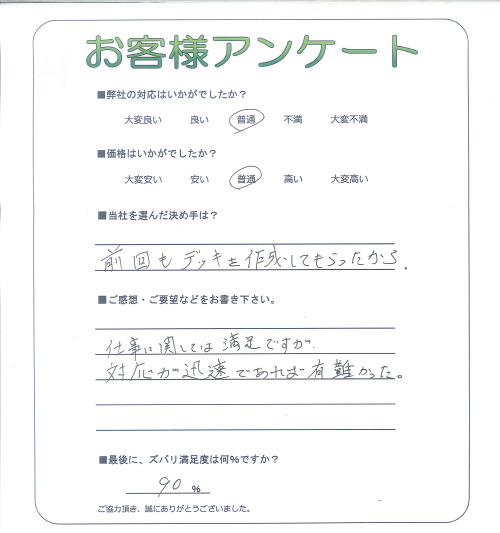 お客様アンケート
■弊社の対応はいかがでしたか？
大変良い 良い 普通 不満 大変不満
■価格はいかがでしたか？
大変安い 安い 普通 高い 大変高い
■当社を選んだ決め手は？
前回もデッキを作成してもらったから.
■ご感想・ご要望などをお書き下さい。
仕事に関しては満足ですが、
対応が迅速であれば有難かった。
■最後に、ズバリ満足度は何%ですか？
90 %
ご協力頂き、誠にありがとうございました。